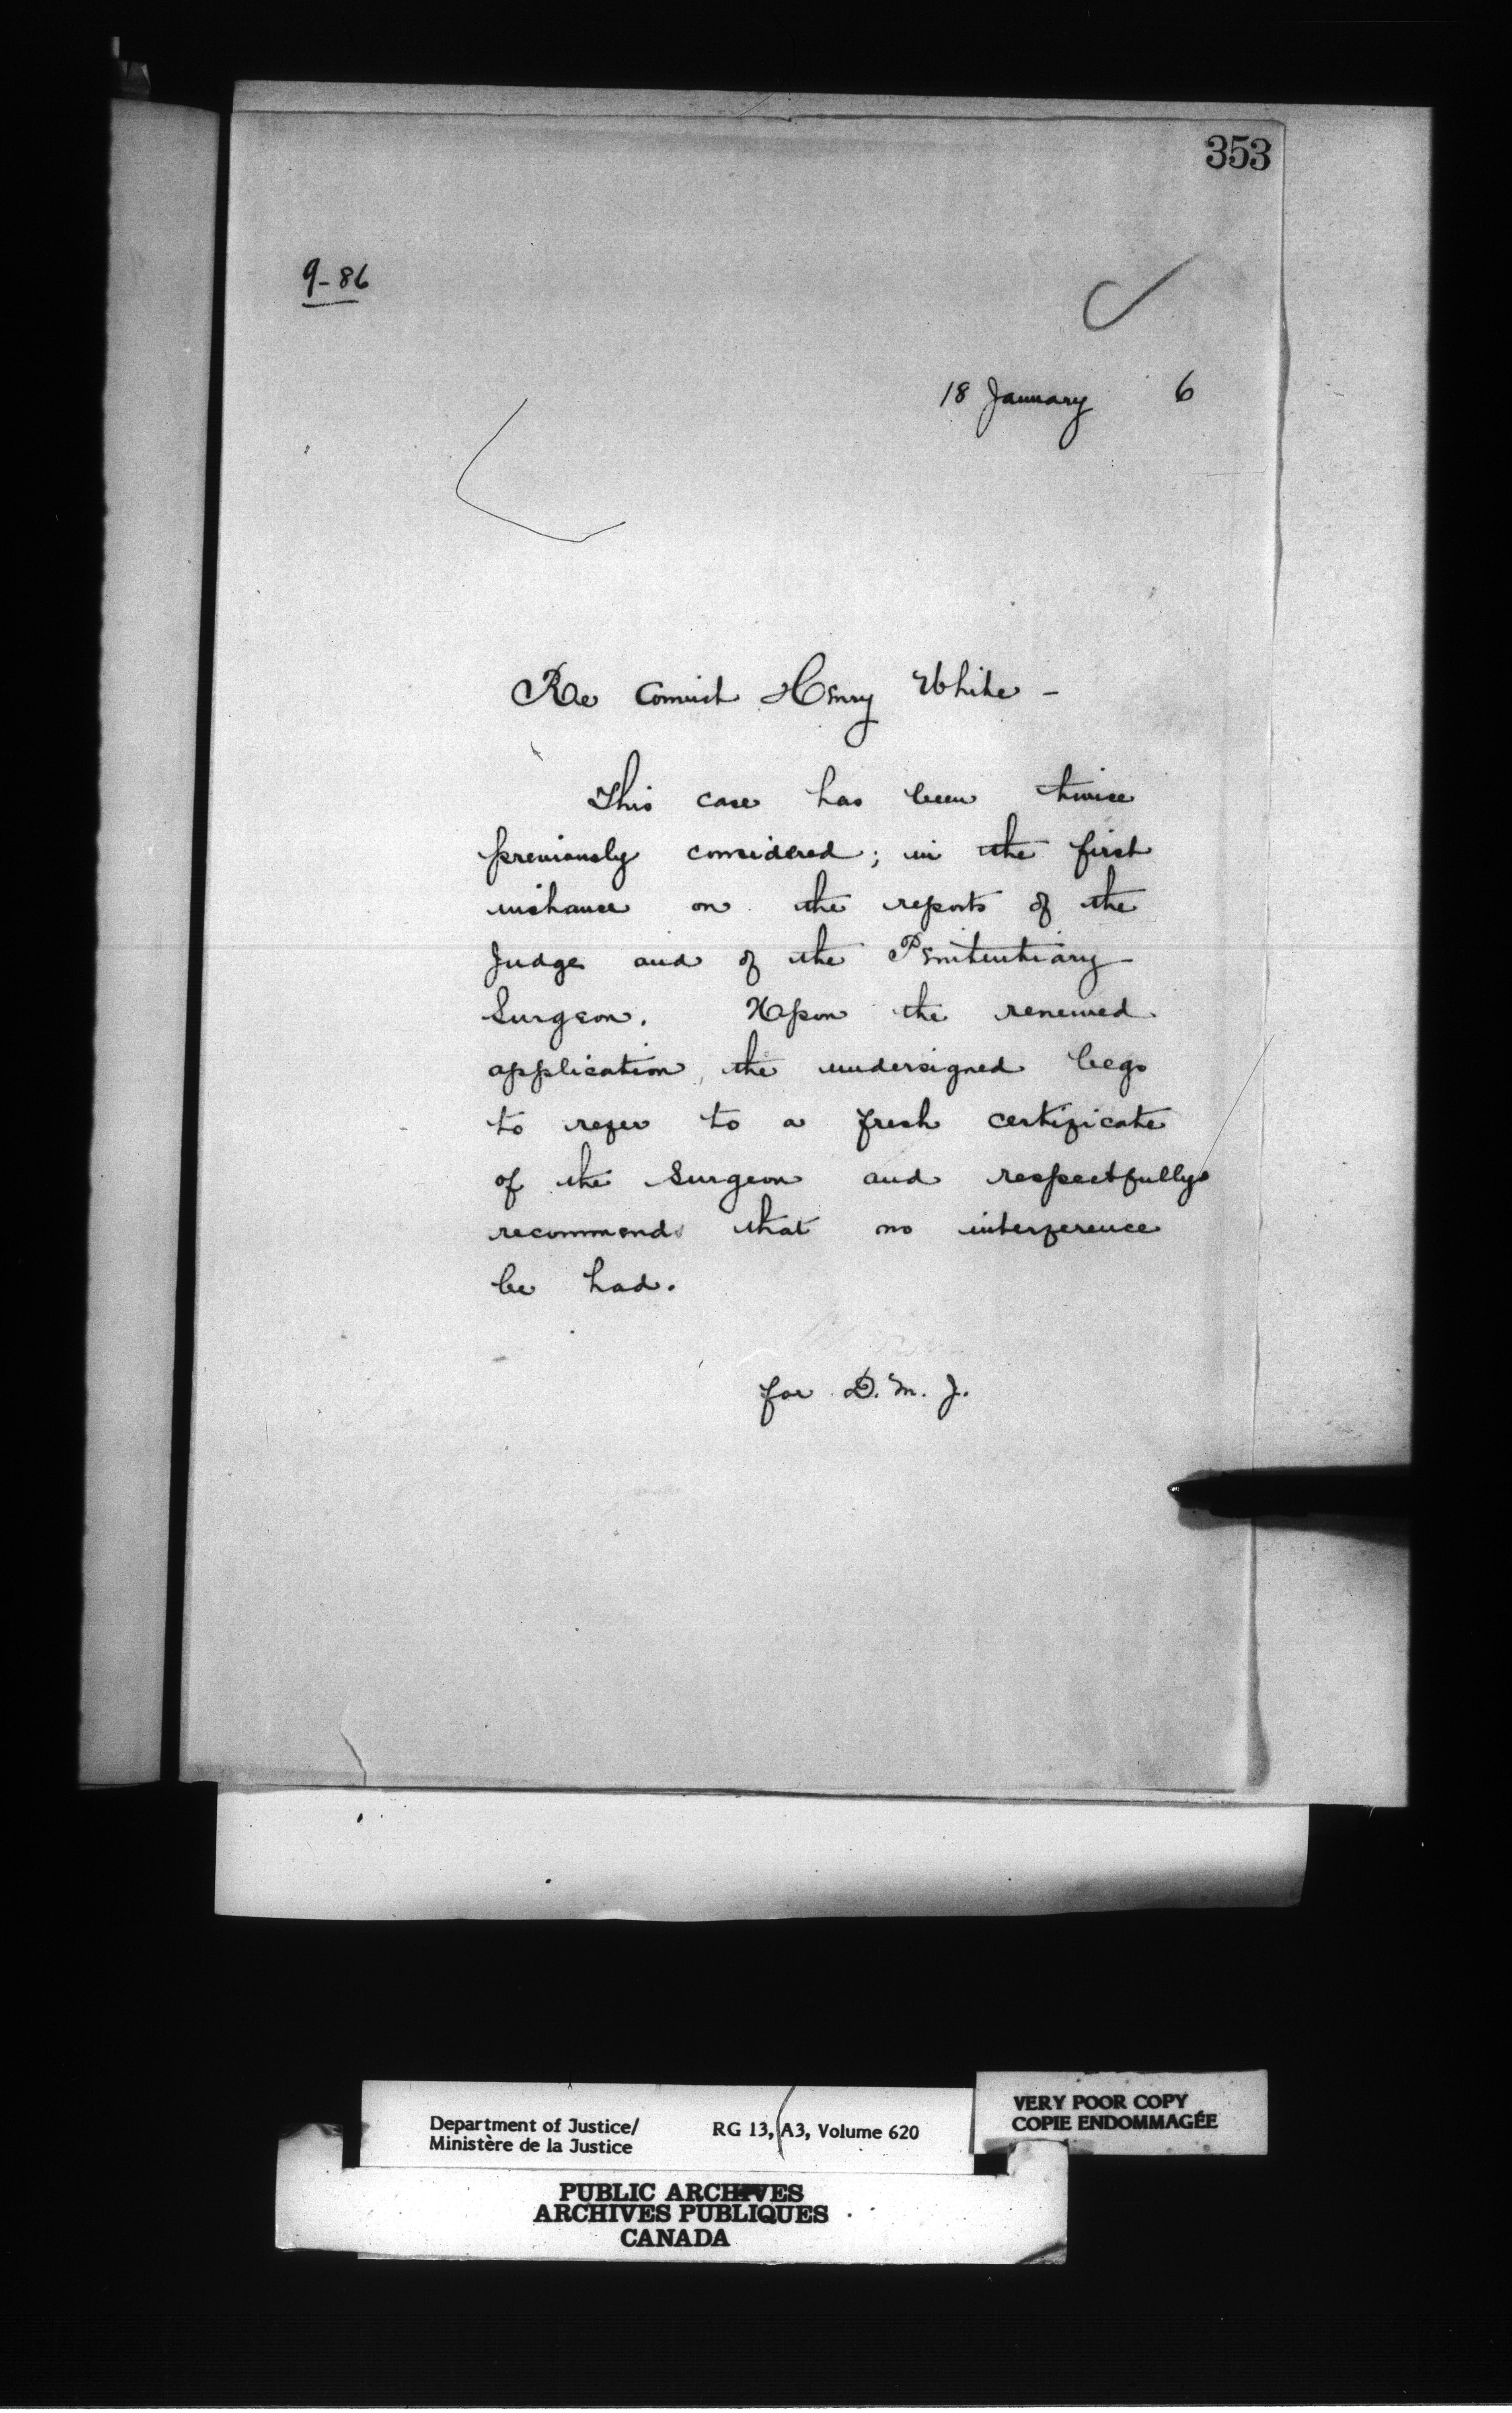 353
9-86
18 January 6
Re Convict Henry White -
This case has been twice
previously considered; in the first
instance on the reports of the
Judge and of the Penitentiary
Surgeon. Upon the renewed
application, the undersigned begs
to refer to a fresh certificate
of the Surgeon and respectfully
recommends that no interference
be had.
for D. M. J.
Department of Justice/
Ministère de la Justice
RG 13, A3, Volume 620
VERY POOR COPY
COPIE ENDOMMAGÉE
PUBLIC ARCHIVES
ARCHIVES PUBLIQUES
CANADA